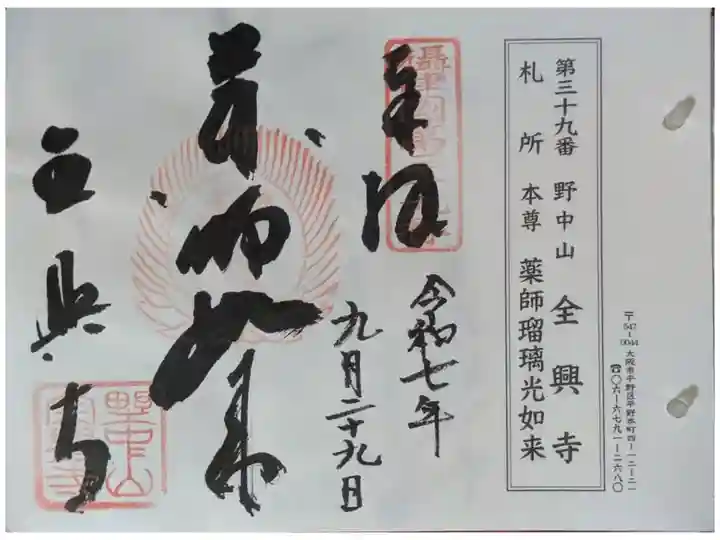 〒547-0044 大阪市平野区平野本町四-一二-二一
☎〇六-六七九一-二六八〇
第三十九番 野中山 全興寺
札所 本尊 薬師瑠璃光如来
奉拝
令和七年
九月二十九日
薬師如来
全興寺
野中山